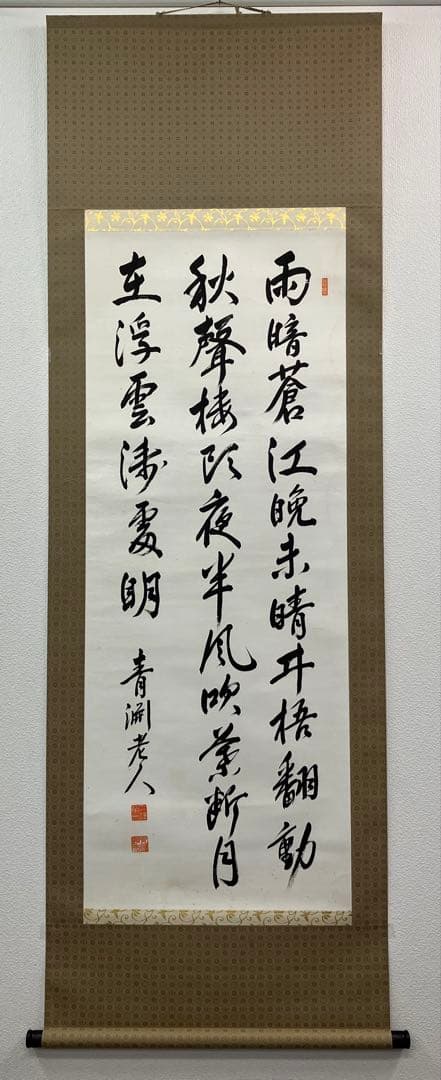 雨暗蒼江晩未晴井梧翻動
秋聲楼頭夜半風吹葉断月
在浮雲浅處明
青淵老人